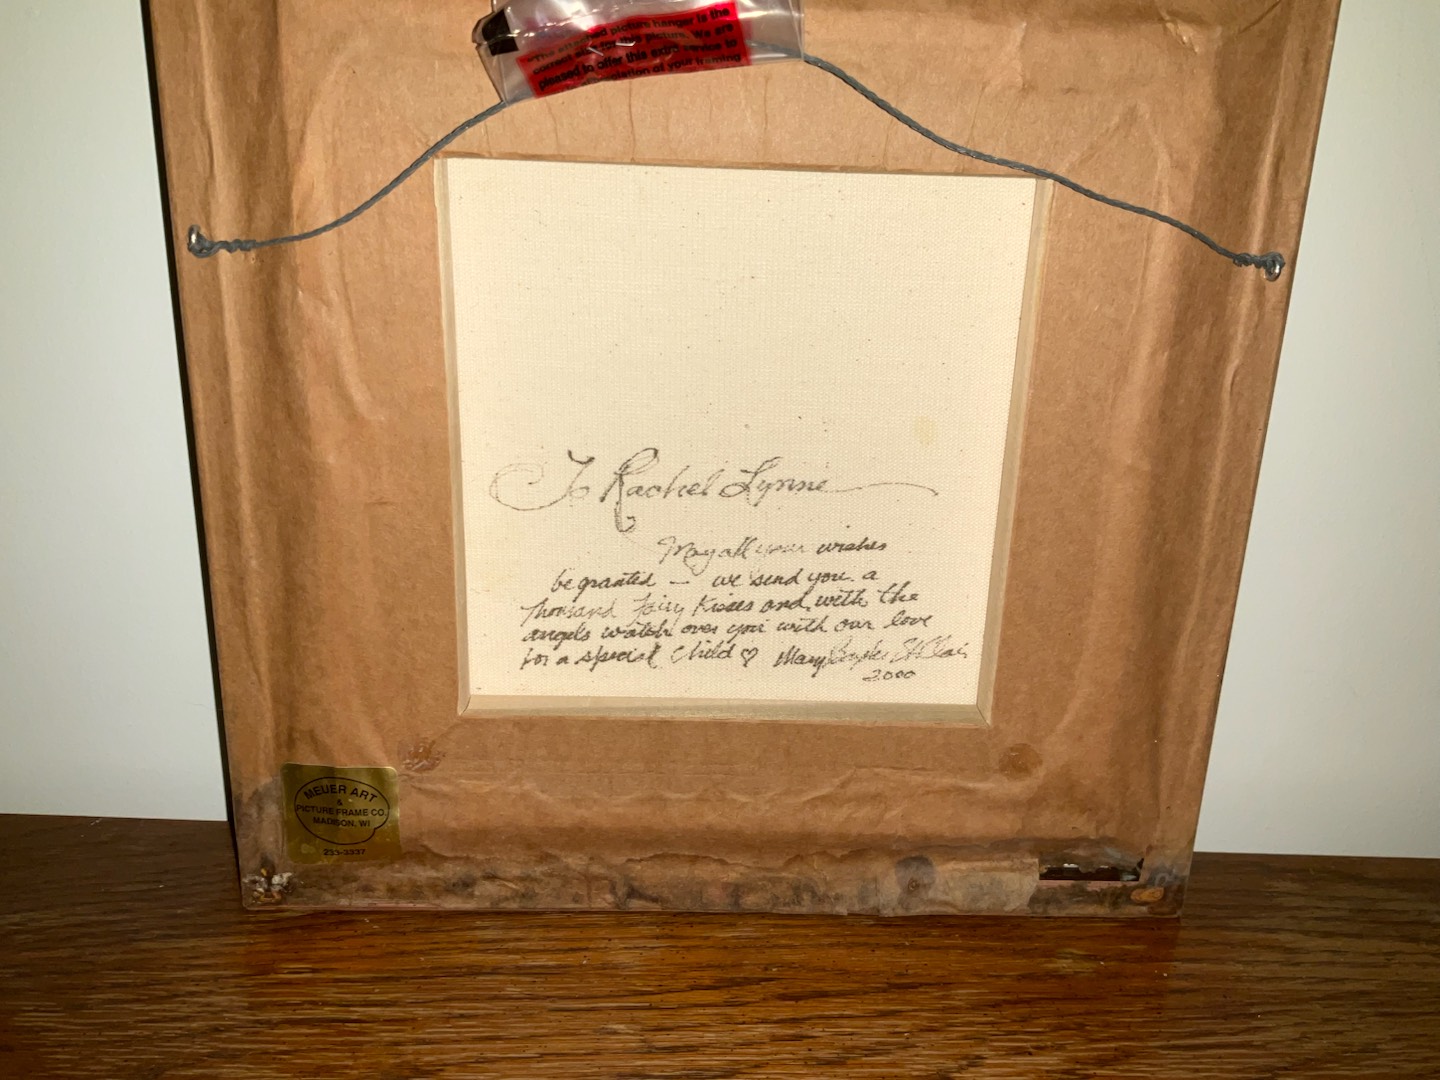 "The attached picture hanger is the
correct size for this picture. We are
pleased to offer this extra service to
completion of your framing
To Rachel Lynne
May all your wishes
be granted — we send you a
Thousand Fairy Kisses and with the
angels watch over you with our love
for a special child ♡ Mary St Clair
2000
MEUER ART
&
PICTURE FRAME CO.
MADISON, WI
233-3337